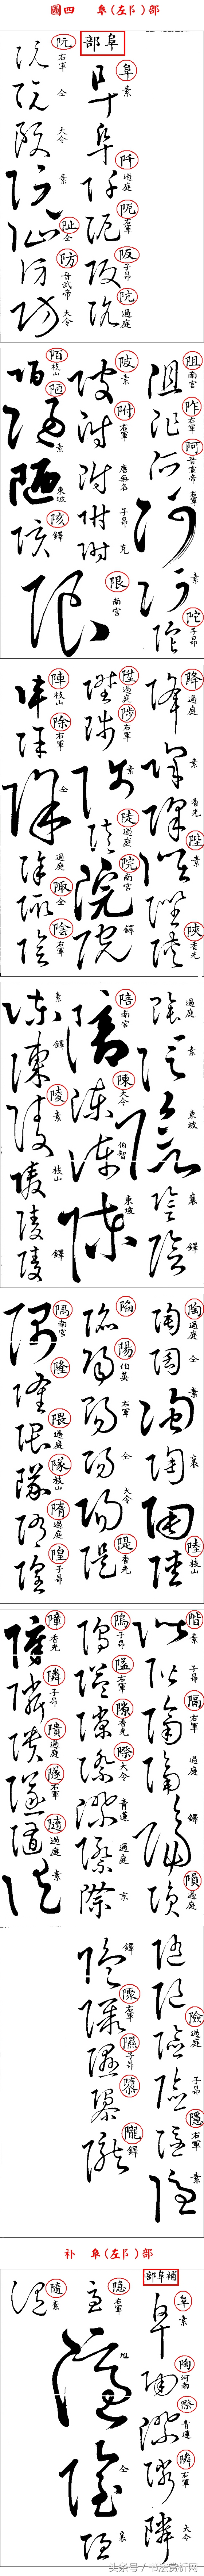 圖四 阜(左阝)部
阜部
阜 素
阡 過庭
阨 右軍
阪 子昂
阬 過庭
阮 右軍
仝
大令
素
阯 仝
防 晉武帝
大令
阻 南宮
阼 右軍
阿 晉宣帝
右軍
素
陀 子昂
陂 素
附 右軍
唐無名
子昂
克
限 南宮
陌 枝山
陋 素
東坡
陔 鐸
降 過庭
素
香光
陛 素
陜 香光
陞 過庭
陟 右軍
素
陡 過庭
院 南宮
鐸
陣 枝山
除 右軍
仝
過庭
陬 仝
陰 右軍
過庭
素
東坡
襄
鐸
陪 南宮
陳 大令
伯智
東坡
素
鐸
陵 素
枝山
鐸
陶 過庭
仝
素
襄
陸 枝山
陷
陽 伯英
右軍
仝
大令
隄 香光
隅 南宮
隆
隈 過庭
隊 枝山
隋 過庭
隍 子昂
階 素
子昂
隔 右軍
過庭
鐸
隕 過庭
隖 子昂
隘 右軍
隙 香光
際 大令
青蓮
過庭
京
障 香光
隣 子昂
隤 過庭
隧 右軍
隨 過庭
素
險 過庭
子昂
隱 右軍
素
鐸
右軍
隰 子昂
隴 鐸
补 阜(左阝)部
補阜部
阜 素
陶 河南
際 青蓮
隣 右軍
大令
隐 右軍
旭
仝
襄
隨 素
头条号/书法赏析网